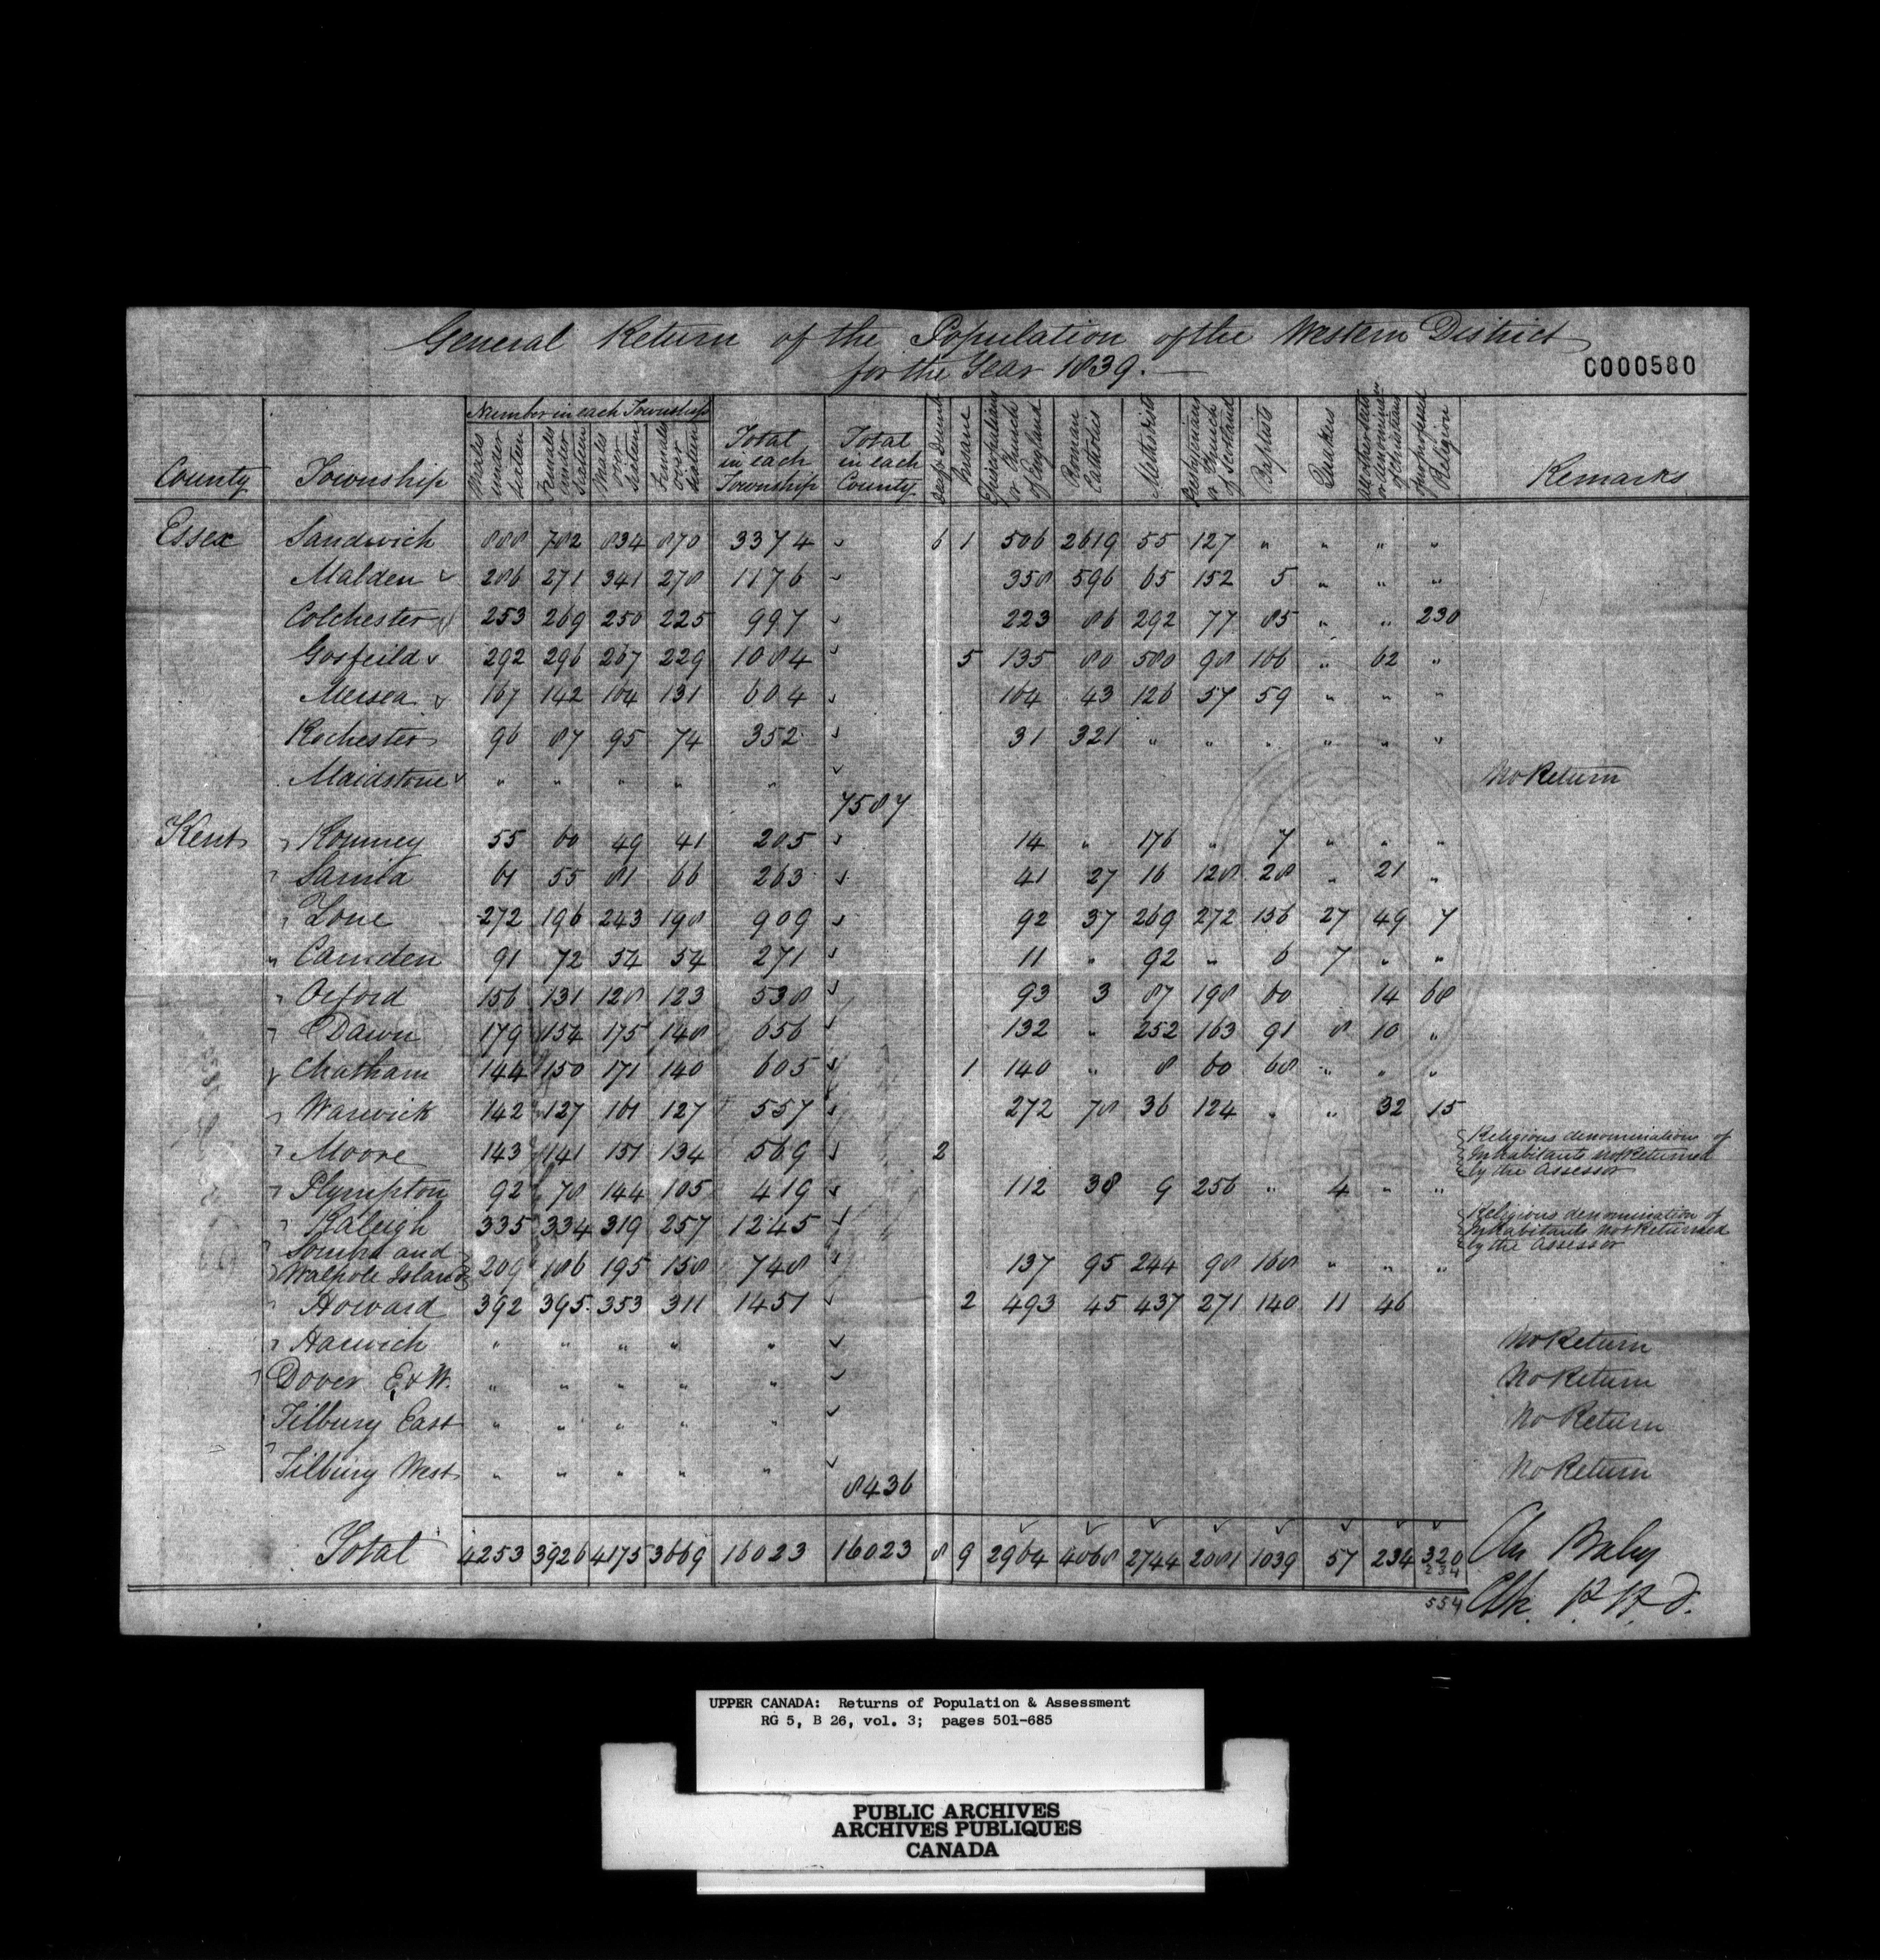 General Return of the Population of the Western District
for the Year 1839.
C000580
County
Township
Number in each Township
Males under sixteen
Females under sixteen
Males over sixteen
Females over sixteen
Total in each Township
Total in each County
Deaf & Dumb
Insane
Episcopalians or Church of England
Roman Catholics
Methodists
Presbyterians or Church of Scotland
Baptists
Quakers
All other sects or denominatns of Christians
of no professed Religion
Remarks
Essex Sandwich 888 782 834 870 3374 6 1 506 2619 55 127 " " " "
Malden 286 271 341 278 1176 358 596 65 152 5 " " "
Colchester 253 269 250 225 997 223 86 292 77 85 " " 230
Gosfeild 292 296 267 229 1084 5 135 80 580 98 166 " 62 "
Mersea 167 142 164 131 604 164 43 126 57 59 " " "
Rochester 96 87 95 74 352 31 321 " " " " " "
Maidstone " " " " " No Return
7587
Kent Romney 55 60 49 41 205 14 " 176 " 7 " " "
Sarnia 61 55 81 66 263 41 27 16 128 28 " 21 "
Zone 272 196 243 198 909 92 37 269 272 156 27 49 7
" Camden 91 72 54 54 271 11 " 92 " 6 7 " "
Orford 156 131 128 123 538 93 3 87 198 60 14 68
Dawn 179 154 175 148 656 132 " 252 163 91 8 10 "
Chatham 144 150 171 140 605 1 140 " 8 60 68 " " "
Warwick 142 127 161 127 557 272 78 36 124 " " 32 15
Moore 143 141 151 134 569 2 Religious denominations of Inhabitants not Returned by the Assessor
Plympton 92 78 144 105 419 112 38 9 256 " 4 " "
Raleigh 335 334 319 257 1245 Religious denomination of Inhabitants not Returned by the Assessor
Sombra and
Walpole Island 209 186 195 158 748 137 95 244 98 168 " " "
Howard 392 395 353 311 1451 2 493 45 437 271 140 11 46
Harwich " " " " " No Return
Dover E & W. " " " " " No Return
Tilbury East " " " " " No Return
Tilbury West " " " " " No Return
8436
Total 4253 3926 4175 3669 16023 16023 8 9 2964 4068 2744 2081 1039 57 234 320
234
554
Chs Baby
Clk. P. W. D.
UPPER CANADA: Returns of Population & Assessment
RG 5, B 26, vol. 3; pages 501-685
PUBLIC ARCHIVES
ARCHIVES PUBLIQUES
CANADA